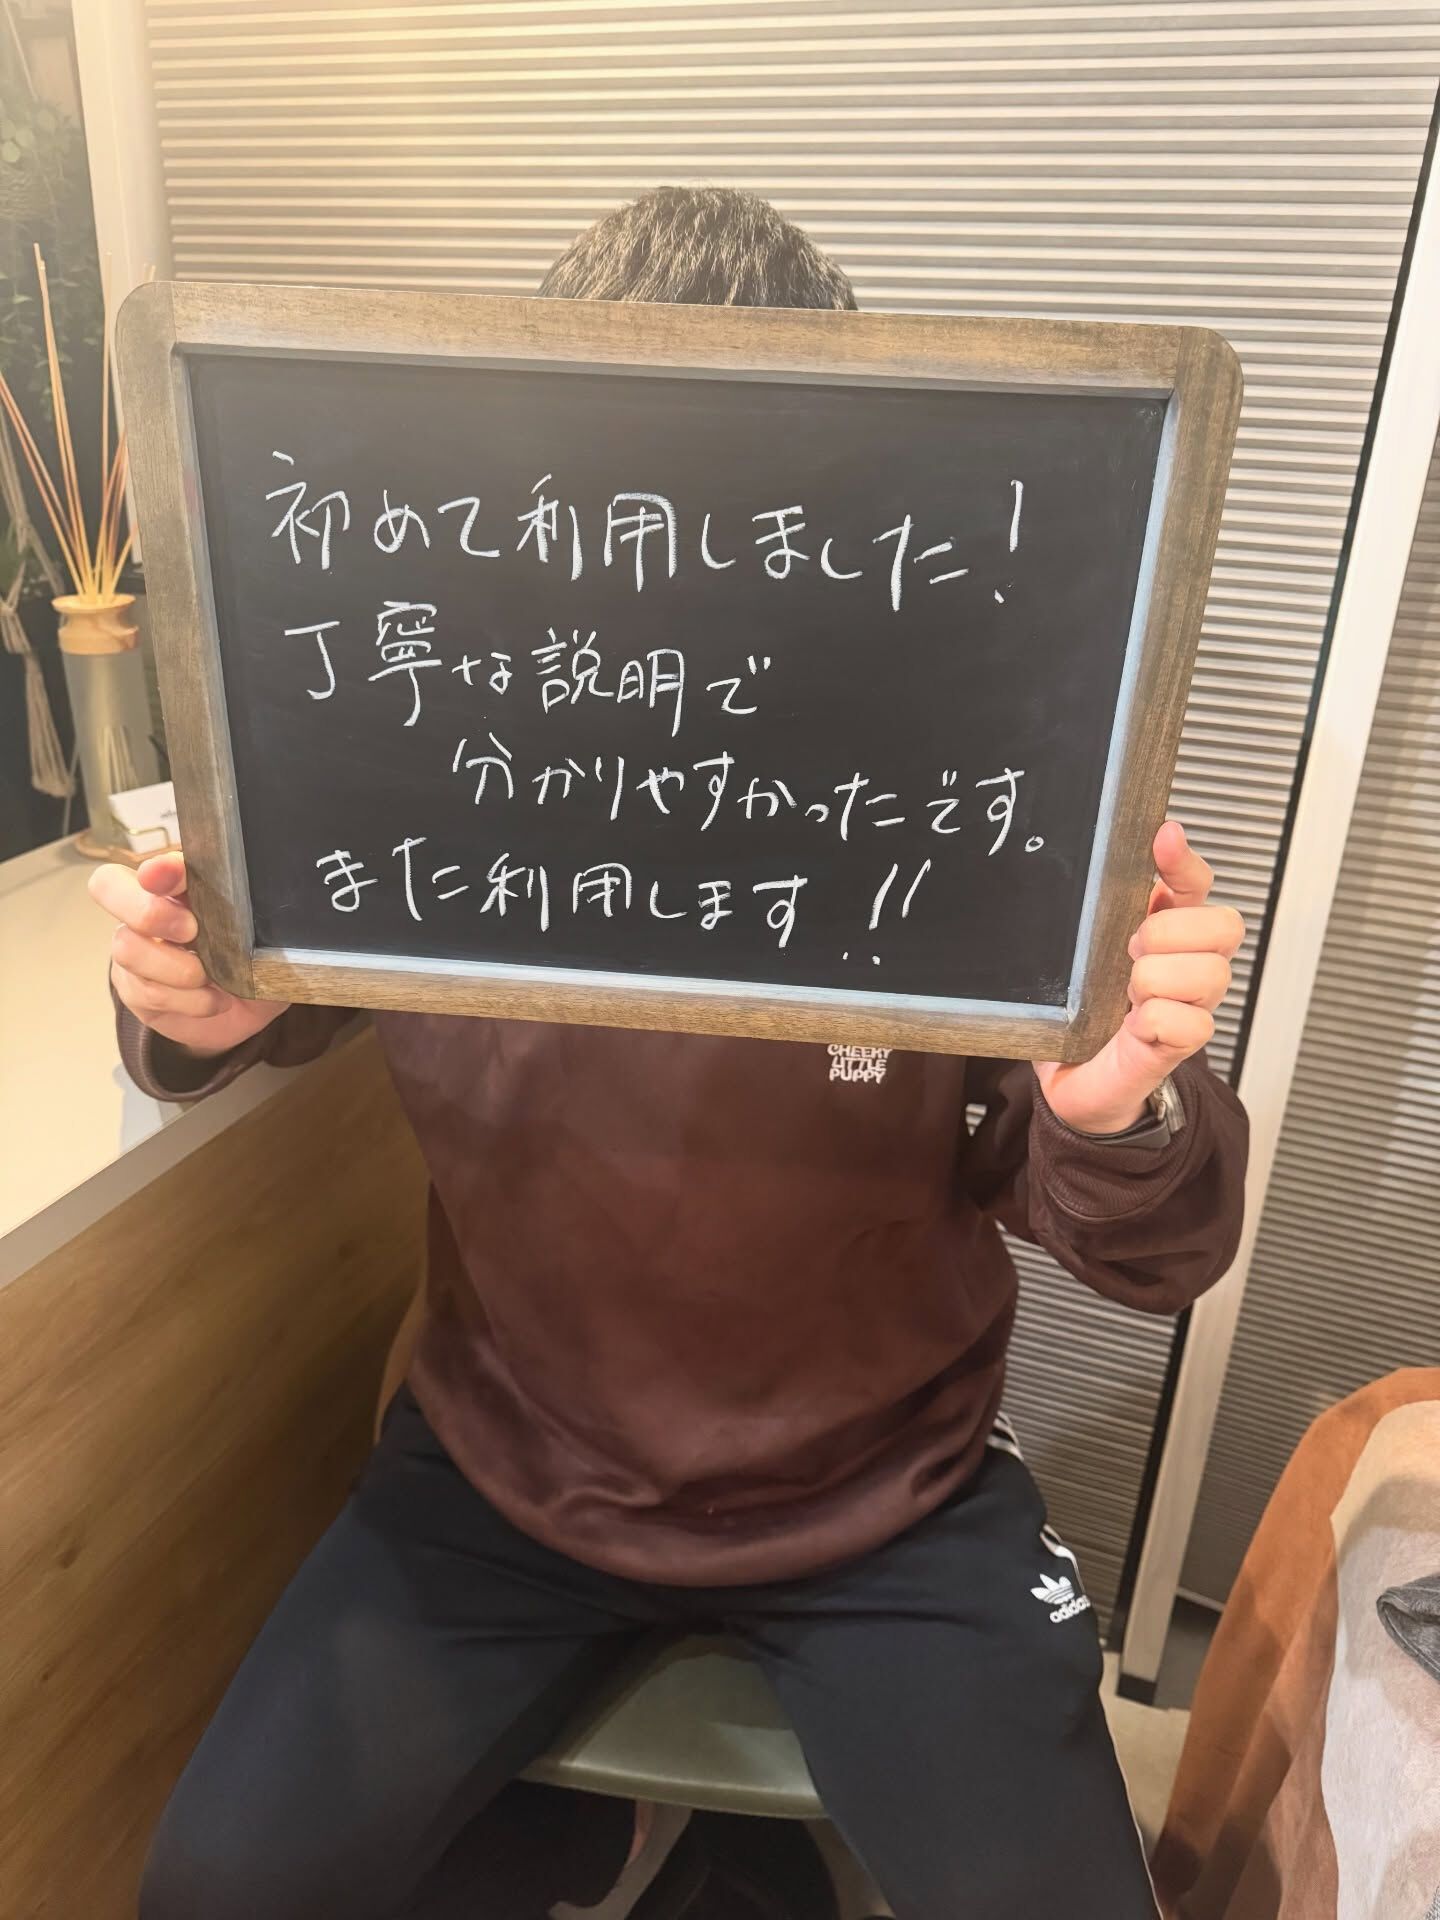 初めて利用しました!
丁寧な説明で
分かりやすかったです。
また利用します!!
CHEEKY
LITTLE
PUPPY
adidas